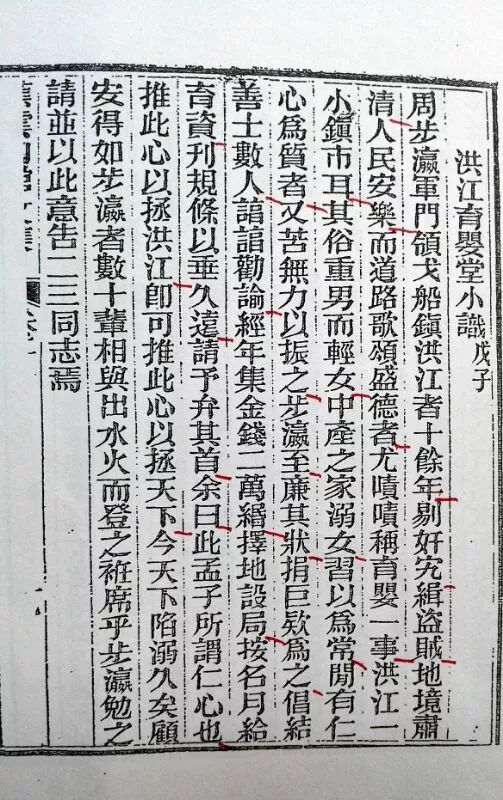 洪江育嬰堂小識戊子
周步瀛軍門領戈船鎮洪江者十餘年剔奸宄緝盜賊地境肅
清人民安樂而道路歌頌盛德者尤嘖嘖稱育嬰一事洪江一
小鎮市耳其俗重男而輕女中產之家溺女習以爲常閒有仁
心爲質者又苦無力以振之步瀛至廉其狀捐巨欵爲之倡結
善士數人諳諳勸諭經年集金錢二萬緡擇地設局按名月給
育資刊規條以垂久遠請予弁其首余曰此孟子所謂仁心也
推此心以拯洪江卽可推此心以拯天下今天下陷溺久矣顧
安得如步瀛者數十輩相與出水火而登之袵席乎步瀛勉之
請並以此意告二三同志焉